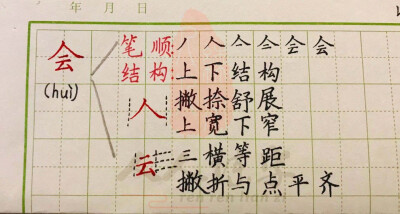 年 月 日
会
(huì)
笔顺:丿 人 亼 亼 会 会
结构:上下结构
人 撇捺舒展
上宽下窄
云 三横等距
撇折与点平齐